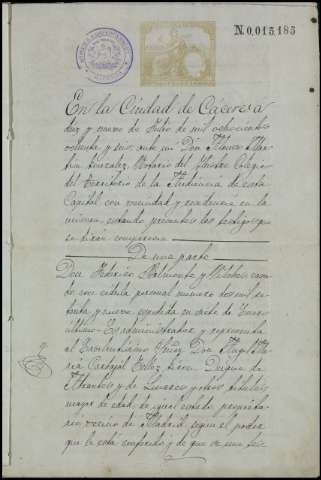 N.0,015,185
En la Ciudad de Cáceres á
diez y nueve de Julio de mil ochocientos
ochenta y seis, ante mí Don
Gonzalez, Notario del Ilustre Colegio
del Territorio de la Audiencia de esta
Capital, con vecindad y residencia en la
misma, estando presentes los testigos que
se dirán comparecen
De una parte
Don Federico Belmonte y
con cédula personal número dos mil
y nueve, expedida en siete de
último administrador y representa
al Excelentísimo Señor Don
Carvajal Tellez Giron Duque de
Abrantes y de Linares y otros titulos
mayor de edad, de igual estado, propieta
rio, vecino de Madrid, segun el poder
que le está conferido y de que es una